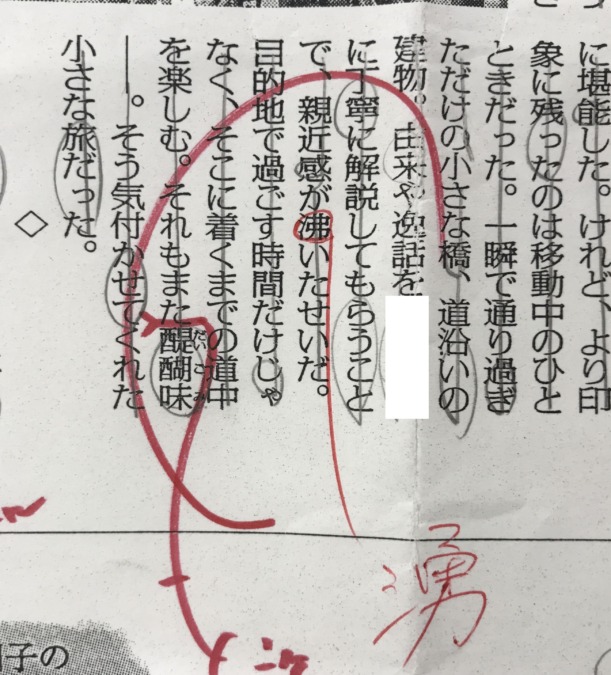 に堪能した。けれど、より印
象に残ったのは移動中のひと
ときだった。一瞬で通り過ぎ
ただけの小さな橋、道沿いの
建物。由来や逸話を
に丁寧に解説してもらうこと
で、親近感が沸いたせいだ。
目的地で過ごす時間だけじゃ
なく、そこに着くまでの道中
を楽しむ。それもまた醍醐味
だいごみ
――。そう気付かせてくれた
小さな旅だった。
◇
湧
子の